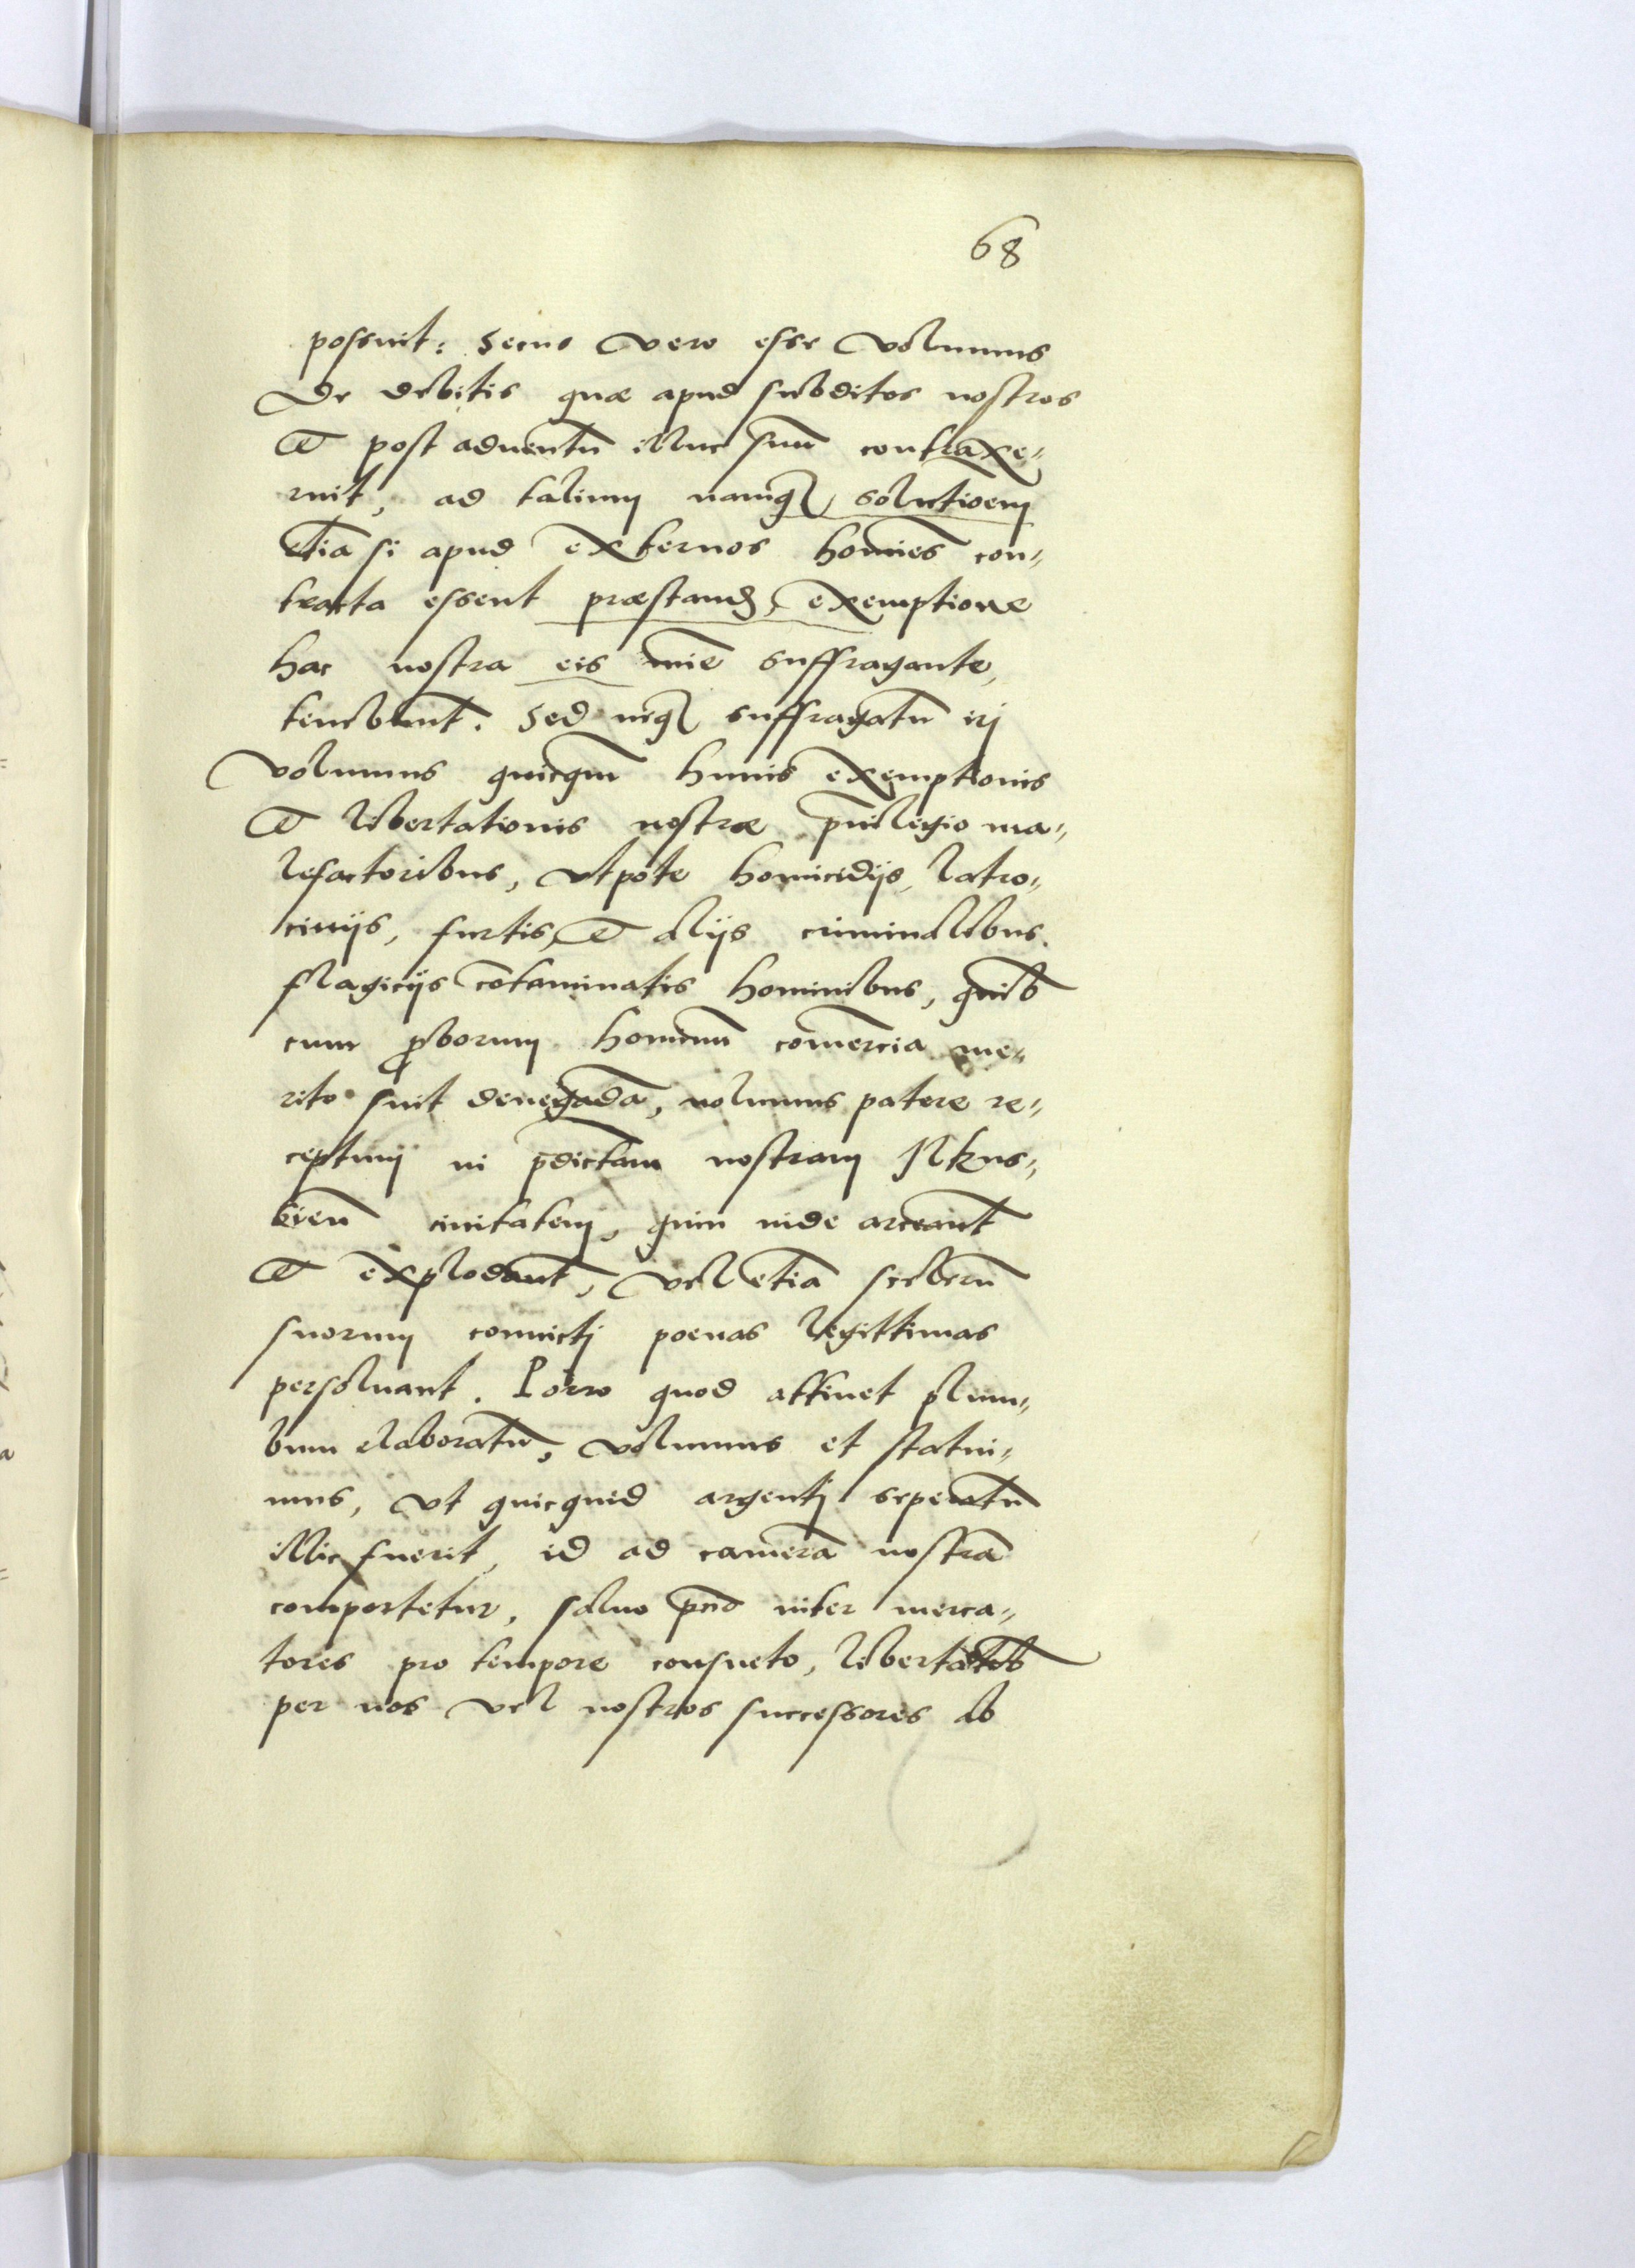 68
possint: Secus vero esse volumus
De debitis quæ apud subditos nostros
et post aduentū illuc suū contraxe„
rint, ad talium namq₃ solutioem
etiā si apud externos homīes con„
tracta essent præstand₃, exemptione
hac nostra eis mīe suffragante,
tenebunt̄. Sed neq₃ suffragatū irj
volumus quicqm̄ huius exemptionis
et libertationis nostræ p̄uilegio ma„
lefactoribus, vtpote homicidijs, latro„
cinijs, furtis, et alijs criminalibus
flagicijs cōtaminatis hominibus, quib
cum proborum hominū com̄ercia me„
rito sint denegādā, nolumus patere re„
ceptum in p̄dictam nostram Ilkus„
kien̄ ciuitatem, quin inde arceant̄
et explodant̄, vel etiā scelerū
suorum conuictj poenas legittimas
persoluant. Porro quod attinet plum„
bum elaboratū, volumus et statui„
mus, vt quicquid argentj seperatū
illic fuerit, id ad camerā nostrā
comportetur, saluo p̄cio inter merca„
tores pro tempore consueto, libertatib
per nos vel nostros successores ab